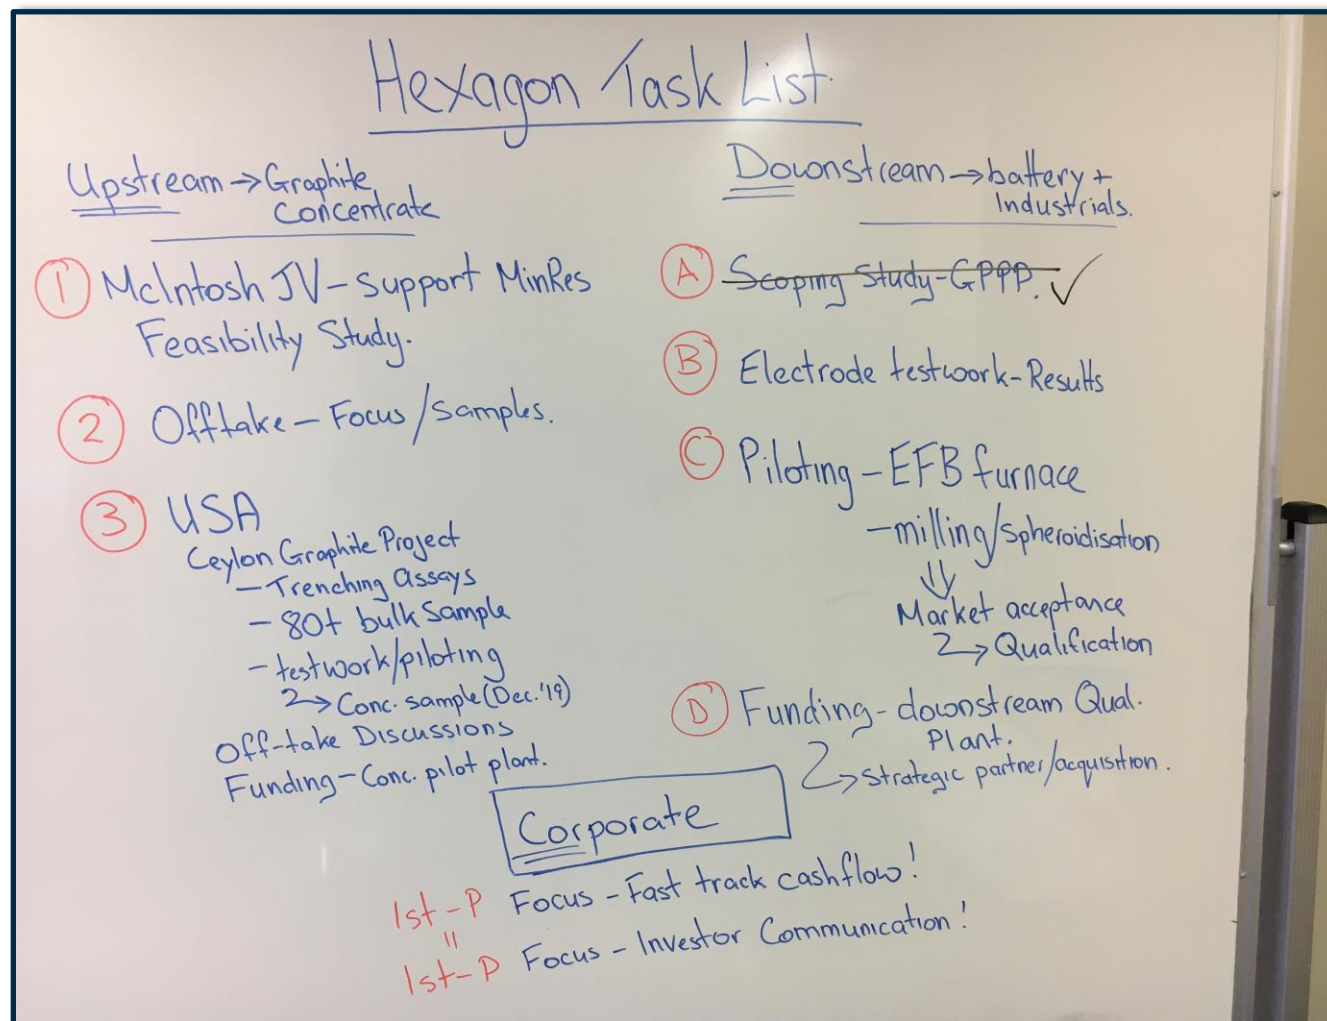 Hexagon Task List.
Upstream → Graphite
Concentrate
① McIntosh JV - Support MinRes
Feasibility Study.
② Offtake - Focus/samples.
③ USA
Ceylon Graphite Project
- Trenching assays
- 80t bulk sample
- testwork/piloting
↳ Conc. sample (Dec.'19)
Off-take Discussions
Funding - Conc. pilot plant.
Downstream → battery +
Industrials.
Ⓐ Scoping Study - GPPP. ✓
Ⓑ Electrode testwork - Results
Ⓒ Piloting - EFB furnace
- milling/spheroidisation
⇓
Market acceptance
↳ Qualification
Ⓓ Funding - downstream Qual.
Plant.
↳ strategic partner/acquisition.
Corporate
1st - P Focus - Fast track cashflow!
=
1st - P Focus - Investor Communication!